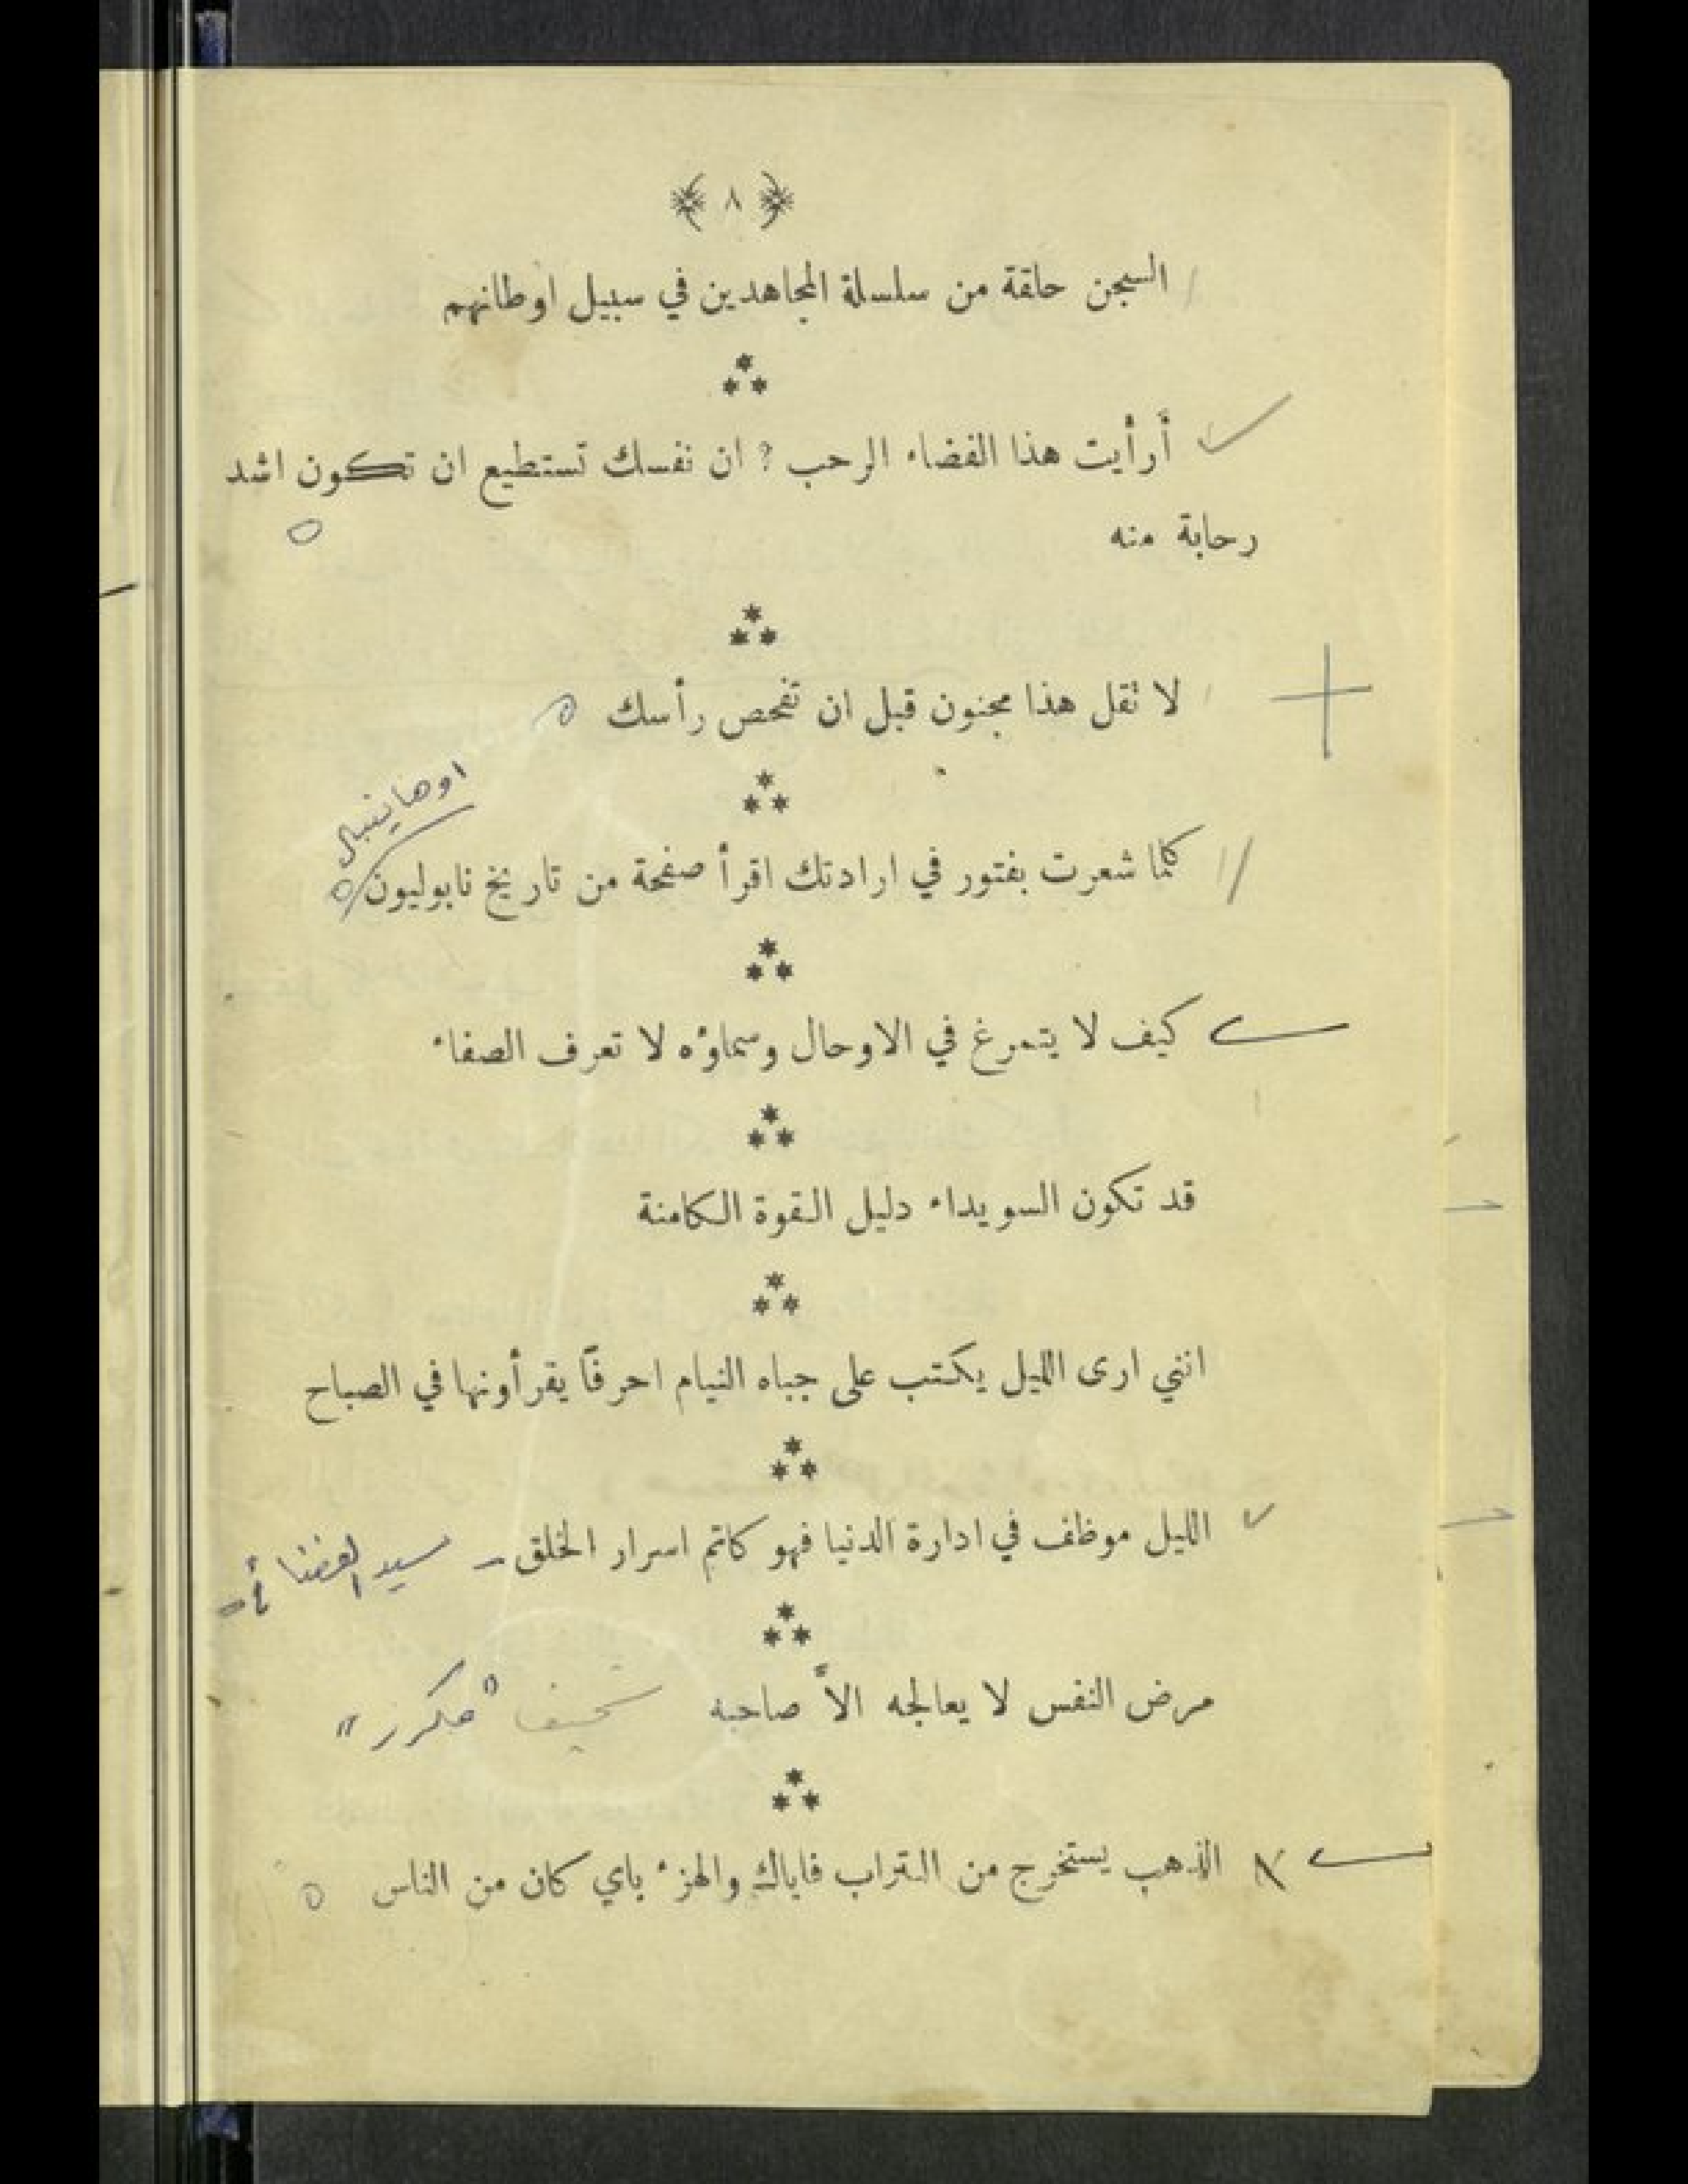 ٨
السجن حلقة من سلسلة المجاهدين في سبيل اوطانهم
أرأيت هذا الفضاء الرحب ؟ ان نفسك تستطيع ان تكون اشد
رحابة منه
لا تقل هذا مجنون قبل ان تفحص رأسك
اوهانيبال
كلما شعرت بفتور في ارادتك اقرأ صفحة من تاريخ نابوليون
كيف لا يتمرغ في الاوحال وسماؤه لا تعرف الصفاء
قد تكون السويداء دليل القوة الكامنة
انني ارى الليل يكتب على جباه النيام احرفاً يقرأونها في الصباح
الليل موظف في ادارة الدنيا فهو كاتم اسرار الخلق - سيد
مرض النفس لا يعالجه الاَّ صاحبه سخيف "مكرر"
الذهب يستخرج من التراب فاياك والهزء باي كان من الناس